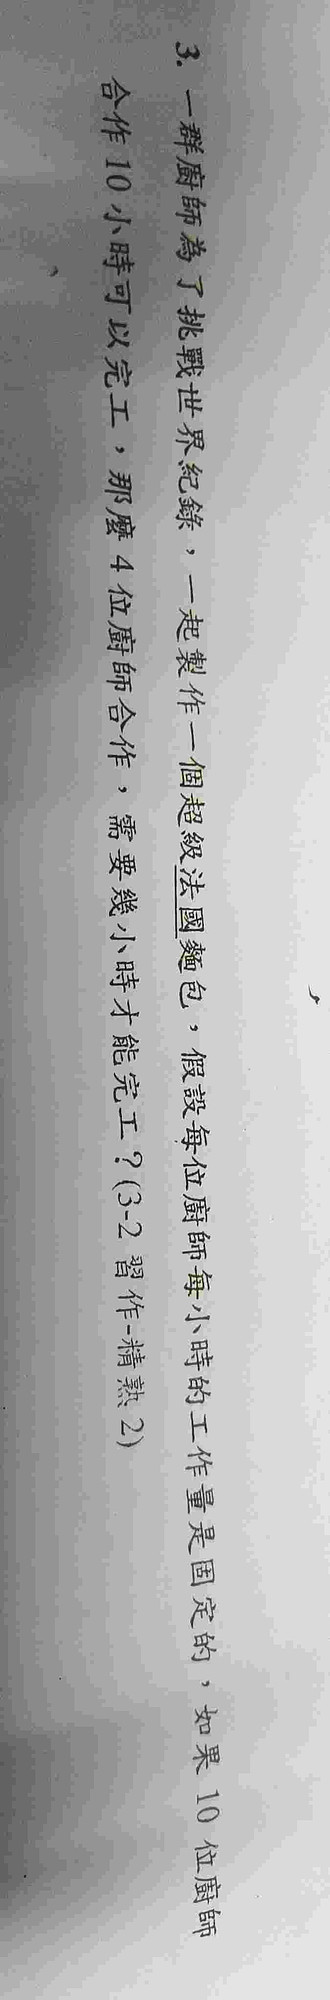 3. 一群廚師為了挑戰世界紀錄，一起製作一個超級法國麵包，假設每位廚師每小時的工作量是固定的，如果 10 位廚師
合作 10 小時可以完工，那麼 4 位廚師合作，需要幾小時才能完工？(3-2 習作-精熟 2)